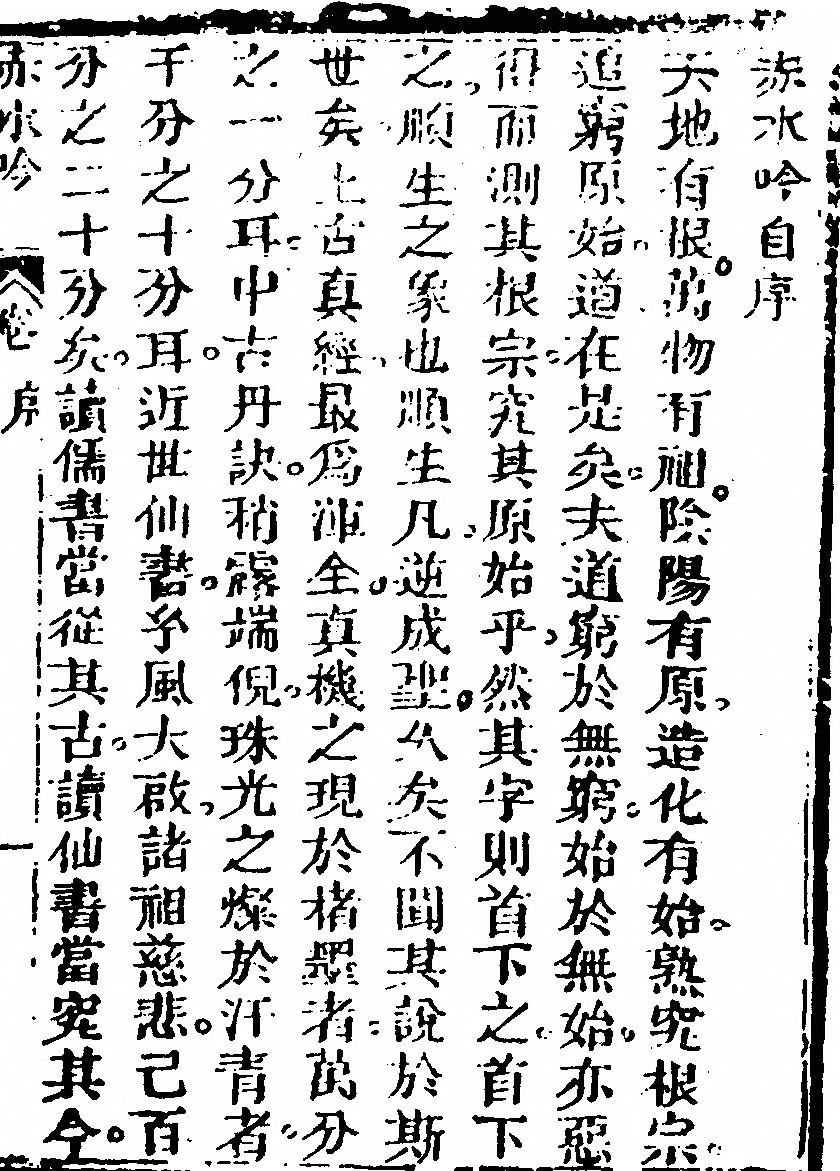 赤水吟自序
天地有根萬物有祖陰陽有原造化有始熟究根宗
追窮原始道在是矣夫道窮於無窮始於無始亦惡
得而測其根宗究其原始乎然其字則首下之首下
之順生之象也順生凡逆成聖久矣不聞其說於斯
世矣上古真經最爲渾全真機之現於楮墨者萬分
之一分耳中古丹訣稍露端倪珠光之燦於汗青者
千分之十分耳近世仙書予風大啟諸祖慈悲已百
分之二十分矣讀儒書當從其古讀仙書當究其今
赤水吟 卷 序 一